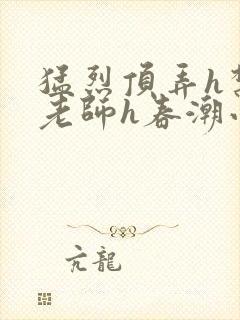 猛烈頂弄h
老師h春潮
亢龍